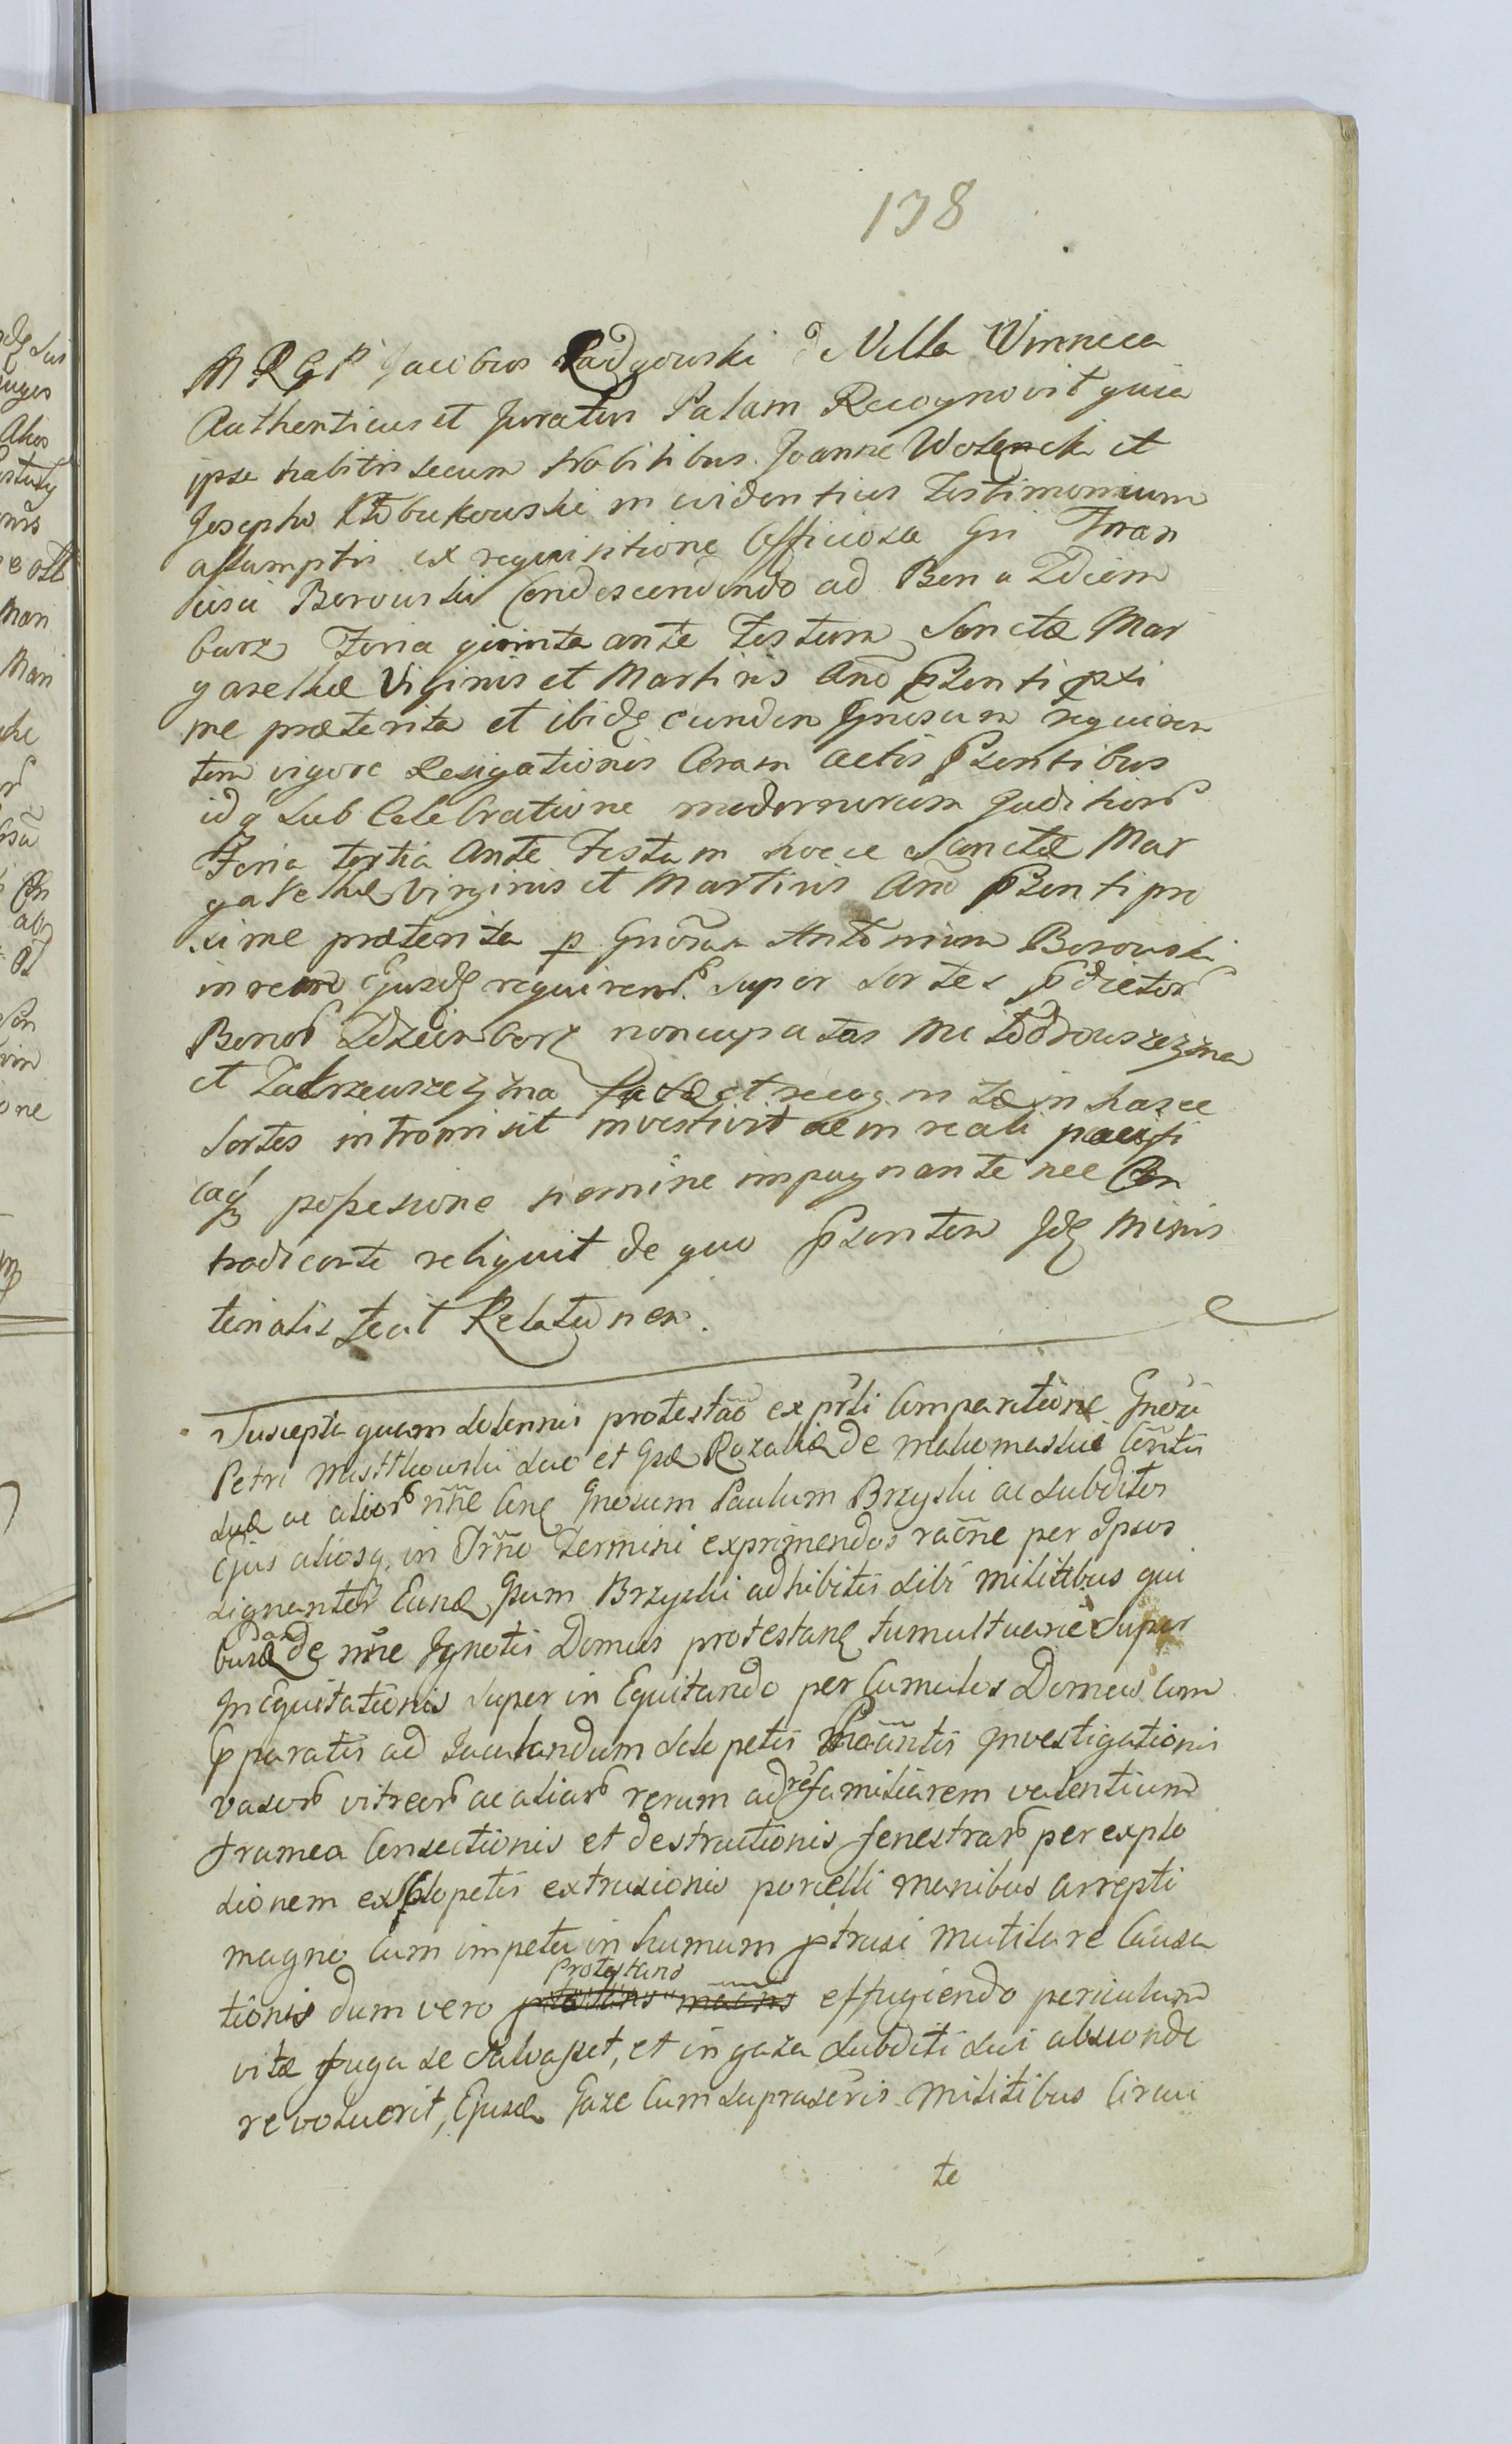 138
M R G P Jacobus Radgowski de Villa Winnica
Authenticus et Juratus Palam Recognovit quia
ipse habitis secum Nobilibus Joanne Wolencki et
Josepho Kłobukowski in evidentius Testimonium
assumptis ex requisitione Officiosa Gsi Fran
cisci Borowski Condescendendo ad Bona Zdziem
borz Feria quinta ante Festum Sanctæ Mar
garethæ Virginis et Martiris Año pszenti pxi
me præterita et ibidę eundem Gnosum requiren
tem vigore Resignationis Coram actis pszentibus
idq sub Celebratione modernorum Juditior
Feria tertia Ante Festum hocce Sanctæ Mar
garethæ Virginis et Martiris Año pszenti pro
xime præterita p Gnosum Antonium Borowski
in rem Ejusdę requirent. super sortes pdictor
Bonor Zdziemborz noncupatas
et factæ et recognitæ in hasce
Sortes intromisit investivit ac in reali pacifi
caq possesione nemine impugnante nec Con
tradicente reliquit de quo pszentem Jdę Minis
terialis fecit Relationem.
Suscepta quam solennis protestaõ ex psli Comparitione Gnosi
Petri Mystkowski suo et Gsæ Rozaliæ de Makomaskie Cõntis
suæ ac alior nñe Cnę Gnosum Paulum Brzyski ac subditos
Ejus aliosq in Trño Termini exprimendos raõne per Ipsos
signanter Eunę Gsum Brzyski adhibitis sibi militibus qui
busdam de nñe Ignotis Domus protestanę tumultuarie Super
Inequitationis super in Equitando per Cumulos Domus Cum
pparatis ad Jaculandum sclopetis Investigationis
vasor vitreor ac aliar rerum ad rẽ familiarem valentium
framea Consectionis et destructionis fenestrar per explo
sionem ex sclopetis extrusionis porcelli manibus arrepti
magno Cum impetu in humum ptrusi mutilare Causa
tionis dum vero Protestans effugiendo periculum
vitæ fuga se salvasset, et in gaza subditi sui absconde
re voluerit, Ejusdę Gaze Cum suprascris militibus Circui
te